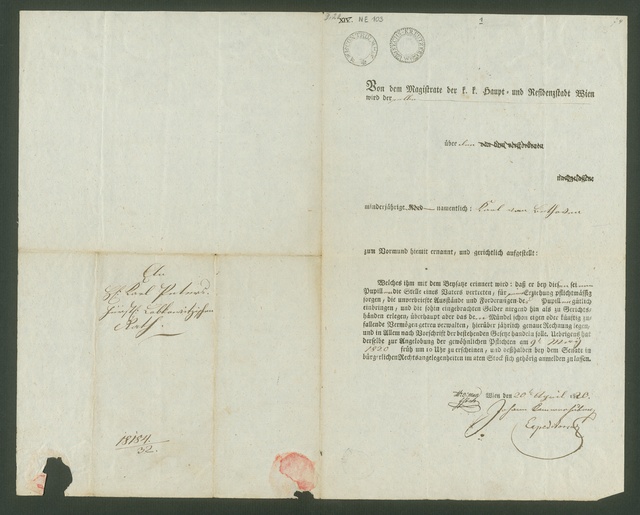 XIV. NE 103
Von dem Magistrate der k. k. Haupt- und Residenzstadt Wien
wird der
über
minderjährige namentlich: Carl van Beethoven
zum Vormund hiemit ernannt, und gerichtlich aufgestellt:
Welches ihm mit dem Beysatze erinnert wird: daß er bey
Pupill die Stelle eines Vaters vertreten, für Erziehung pflichtmässig
sorgen, die unberichtigten Ausstände und Forderungen de Pupill gütlich
einbringen, und die sohin eingebrachten Gelder nirgend hin als zu Gerichts-
handen erlegen, überhaupt aber das de Mündel schon eigen oder künftig zu
fallende Vermögen getreu verwalten, hierüber jährlich genaue Rechnung legen,
und in Allem nach Vorschrift der bestehenden Gesetze handeln solle. Uebrigens hat
derselbe zur Angelobung der gewöhnlichen Pflichten am
1820 früh um 10 Uhr zu erscheinen, und deßhalben bey dem Senate in
bürgerlichen Rechtsangelegenheiten im 2ten Stock sich gehörig anmelden zu lassen.
Wien den 20 April 820.
Johann
Expeditor
An
H. Carl Peters
Fürstl. Lobkowitzischen
Rath.
18184
32.